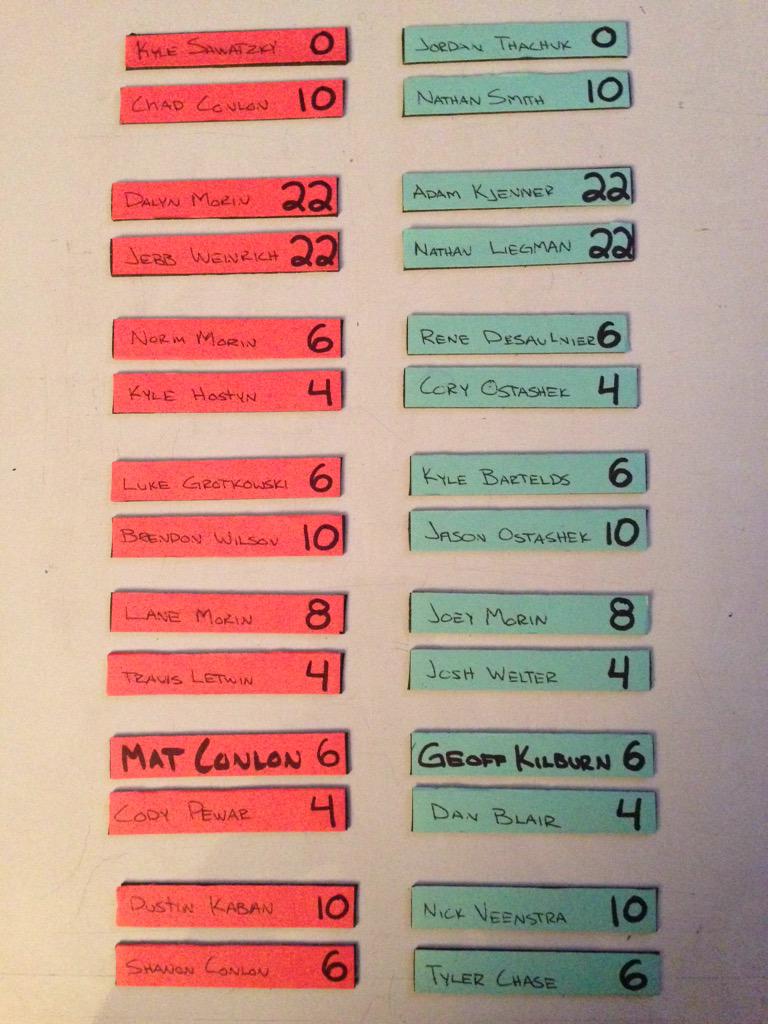 KYLE SAWATZKY 0
JORDAN THACHUK 0
CHAD CONLON 10
NATHAN SMITH 10
DALYN MORIN 22
ADAM KJENNER 22
JEBB WEINRICH 22
NATHAN LIEGMAN 22
NORM MORIN 6
RENE DESAULNIER 6
KYLE HOSTYN 4
CORY OSTASHEK 4
LUKE GROTKOWSKI 6
KYLE BARTELDS 6
BRENDON WILSON 10
JASON OSTASHEK 10
LANE MORIN 8
JOEY MORIN 8
TRAVIS LETWIN 4
JOSH WELTER 4
MAT CONLON 6
GEOFF KILBURN 6
CODY PEWAR 4
DAN BLAIR 4
DUSTIN KABAN 10
NICK VEENSTRA 10
SHANON CONLON 6
TYLER CHASE 6